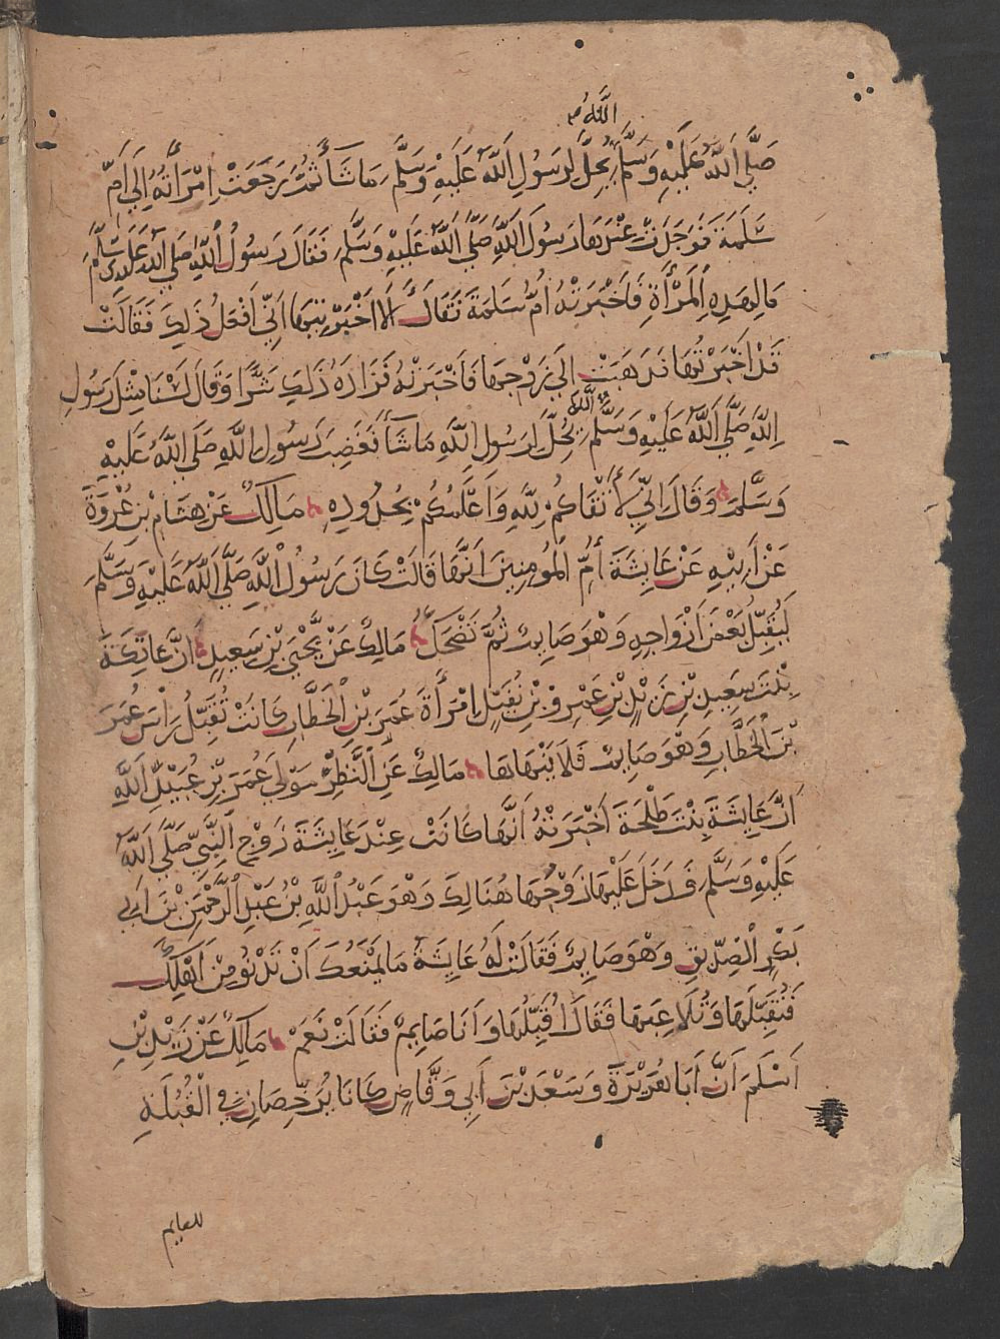 الله
صَلَّى اللَّهُ عَلَيْهِ وَسَلَّمَ يُحِلُّ لِرَسُولِ اللَّهِ عَلَيْهِ وَسَلَّمَ مَا شَآءَ ثُمَّ رَجَعَتْ اِمْرَأَتُهُ اِلَى أُمِّ
سَلَمَةَ فَوَجَدَتْ عِنْدَهَا رَسُولَ اللَّهِ صَلَّى اللَّهُ عَلَيْهِ وَسَلَّمَ فَقَالَ رَسُولُ اللَّهِ صَلَّى اللَّهُ عَلَيْهِ وَسَلَّمَ
مَا لِهَذِهِ الْمَرْأَةِ فَاَخْبَرَتْهُ اُمُّ سَلَمَةَ فَقَالَ أَلَا اَخْبَرْتِيهَا اَنِّي اَفْعَلُ ذَلِكَ فَقَالَتْ
قَدْ اَخْبَرْتُهَا فَذَهَبَتْ اِلَى زَوْجِهَا فَاَخْبَرَتْهُ فَزَادَهُ ذَلِكَ شَرًّا وَقَالَ لَسْنَا مِثْلَ رَسُولِ
اللَّهِ صَلَّى اللَّهُ عَلَيْهِ وَسَلَّمَ اللَّهُ يُحِلُّ لِرَسُولِ اللَّهِ مَا شَآءَ فَغَضِبَ رَسُولُ اللَّهِ صَلَّى اللَّهُ عَلَيْهِ
وَسَلَّمَ وَقَالَ اِنِّي لَأَتْقَاكُمْ لِلَّهِ وَاَعْلَمُكُمْ بِحُدُودِهِ مَالِكٌ عَنْ هِشَامْ بْنِ عُرْوَةَ
عَنْ أَبِيهِ عَنْ عَايِشَةَ أُمِّ الْمُومِنِينَ اَنَّهَا قَالَتْ كَانَ رَسُولُ اللَّهِ صَلَّى اللَّهُ عَلَيْهِ وَسَلَّمَ
لَيُقَبِّلُ بَعْضَ اَزْوَاجِهِ وَهْوَ صَايِمٌ ثُمَّ تَضْحَكُ مَالِكٌ عَنْ يَّحْيَى بْنِ سَعِيدٍ اَنَّ عَاتِكَةَ
بِنْتَ سَعِيدِ بْنِ زَيْدِ بْنِ عَمْرِو بْنِ نُفَيْلٍ اِمْرَأَةَ عُمَرَ بْنِ الْخَطَّابِ كَانَتْ تُقَبِّلُ رَاسَ عُمَرَ
بْنَ الْخَطَّابِ وَهْوَ صَايِمٌ فَلَا يَنْهَاهَا مَالِكٌ عَنْ اَبِي النَّضْرِ مَوْلَى عُمَرَ بْنِ عُبَيْدِ اللَّهِ
اَنَّ عَايِشَةَ بِنْتَ طَلْحَةَ اَخْبَرَتْهُ اَنَّهَا كَانَتْ عِنْدَ عَايِشَةَ زَوْجِ النَّبِيِّ صَلَّى اللَّهُ
عَلَيْهِ وَسَلَّمَ فَدَخَلَ عَلَيْهَا زَوْجُهَا هُنَالِكَ وَهْوَ عَبْدُ اللَّهِ بْنُ عَبْدِ الرَّحْمَنِ بْنِ اَبِي
بَكْرٍ الصِّدِّيقِ وَهْوَ صَايِمٌ فَقَالَتْ لَهُ عَايِشَةُ مَا يَمْنَعُكَ اَنْ تَدْنُوَ مِنْ اَهْلِكَ
فَتُقَبِّلَهَا وَتُلَاعِبَهَا فَقَالَ اُقَبِّلُهَا وَاَنَا صَايِمٌ فَقَالَتْ نَعَمْ مَالِكٌ عَنْ زَيْدِ بْنِ
اَسْلَمَ اَنَّ اَبَا هُرَيْرَةَ وَسَعْدَ بْنَ اَبِي وَقَّاصٍ كَانَا يُرَخِّصَانِ فِي الْقُبْلَةِ
للصايم